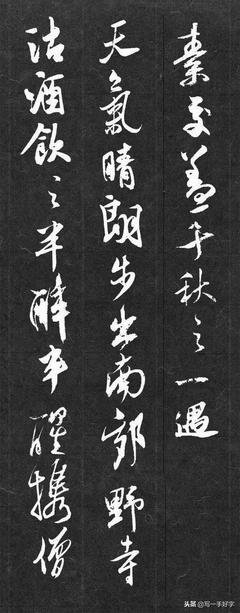 素交盖千秋之一遇
天氣晴朗步出南郊野寺
沽酒飲之半醉半醒攜僧
头条 @写一手好字